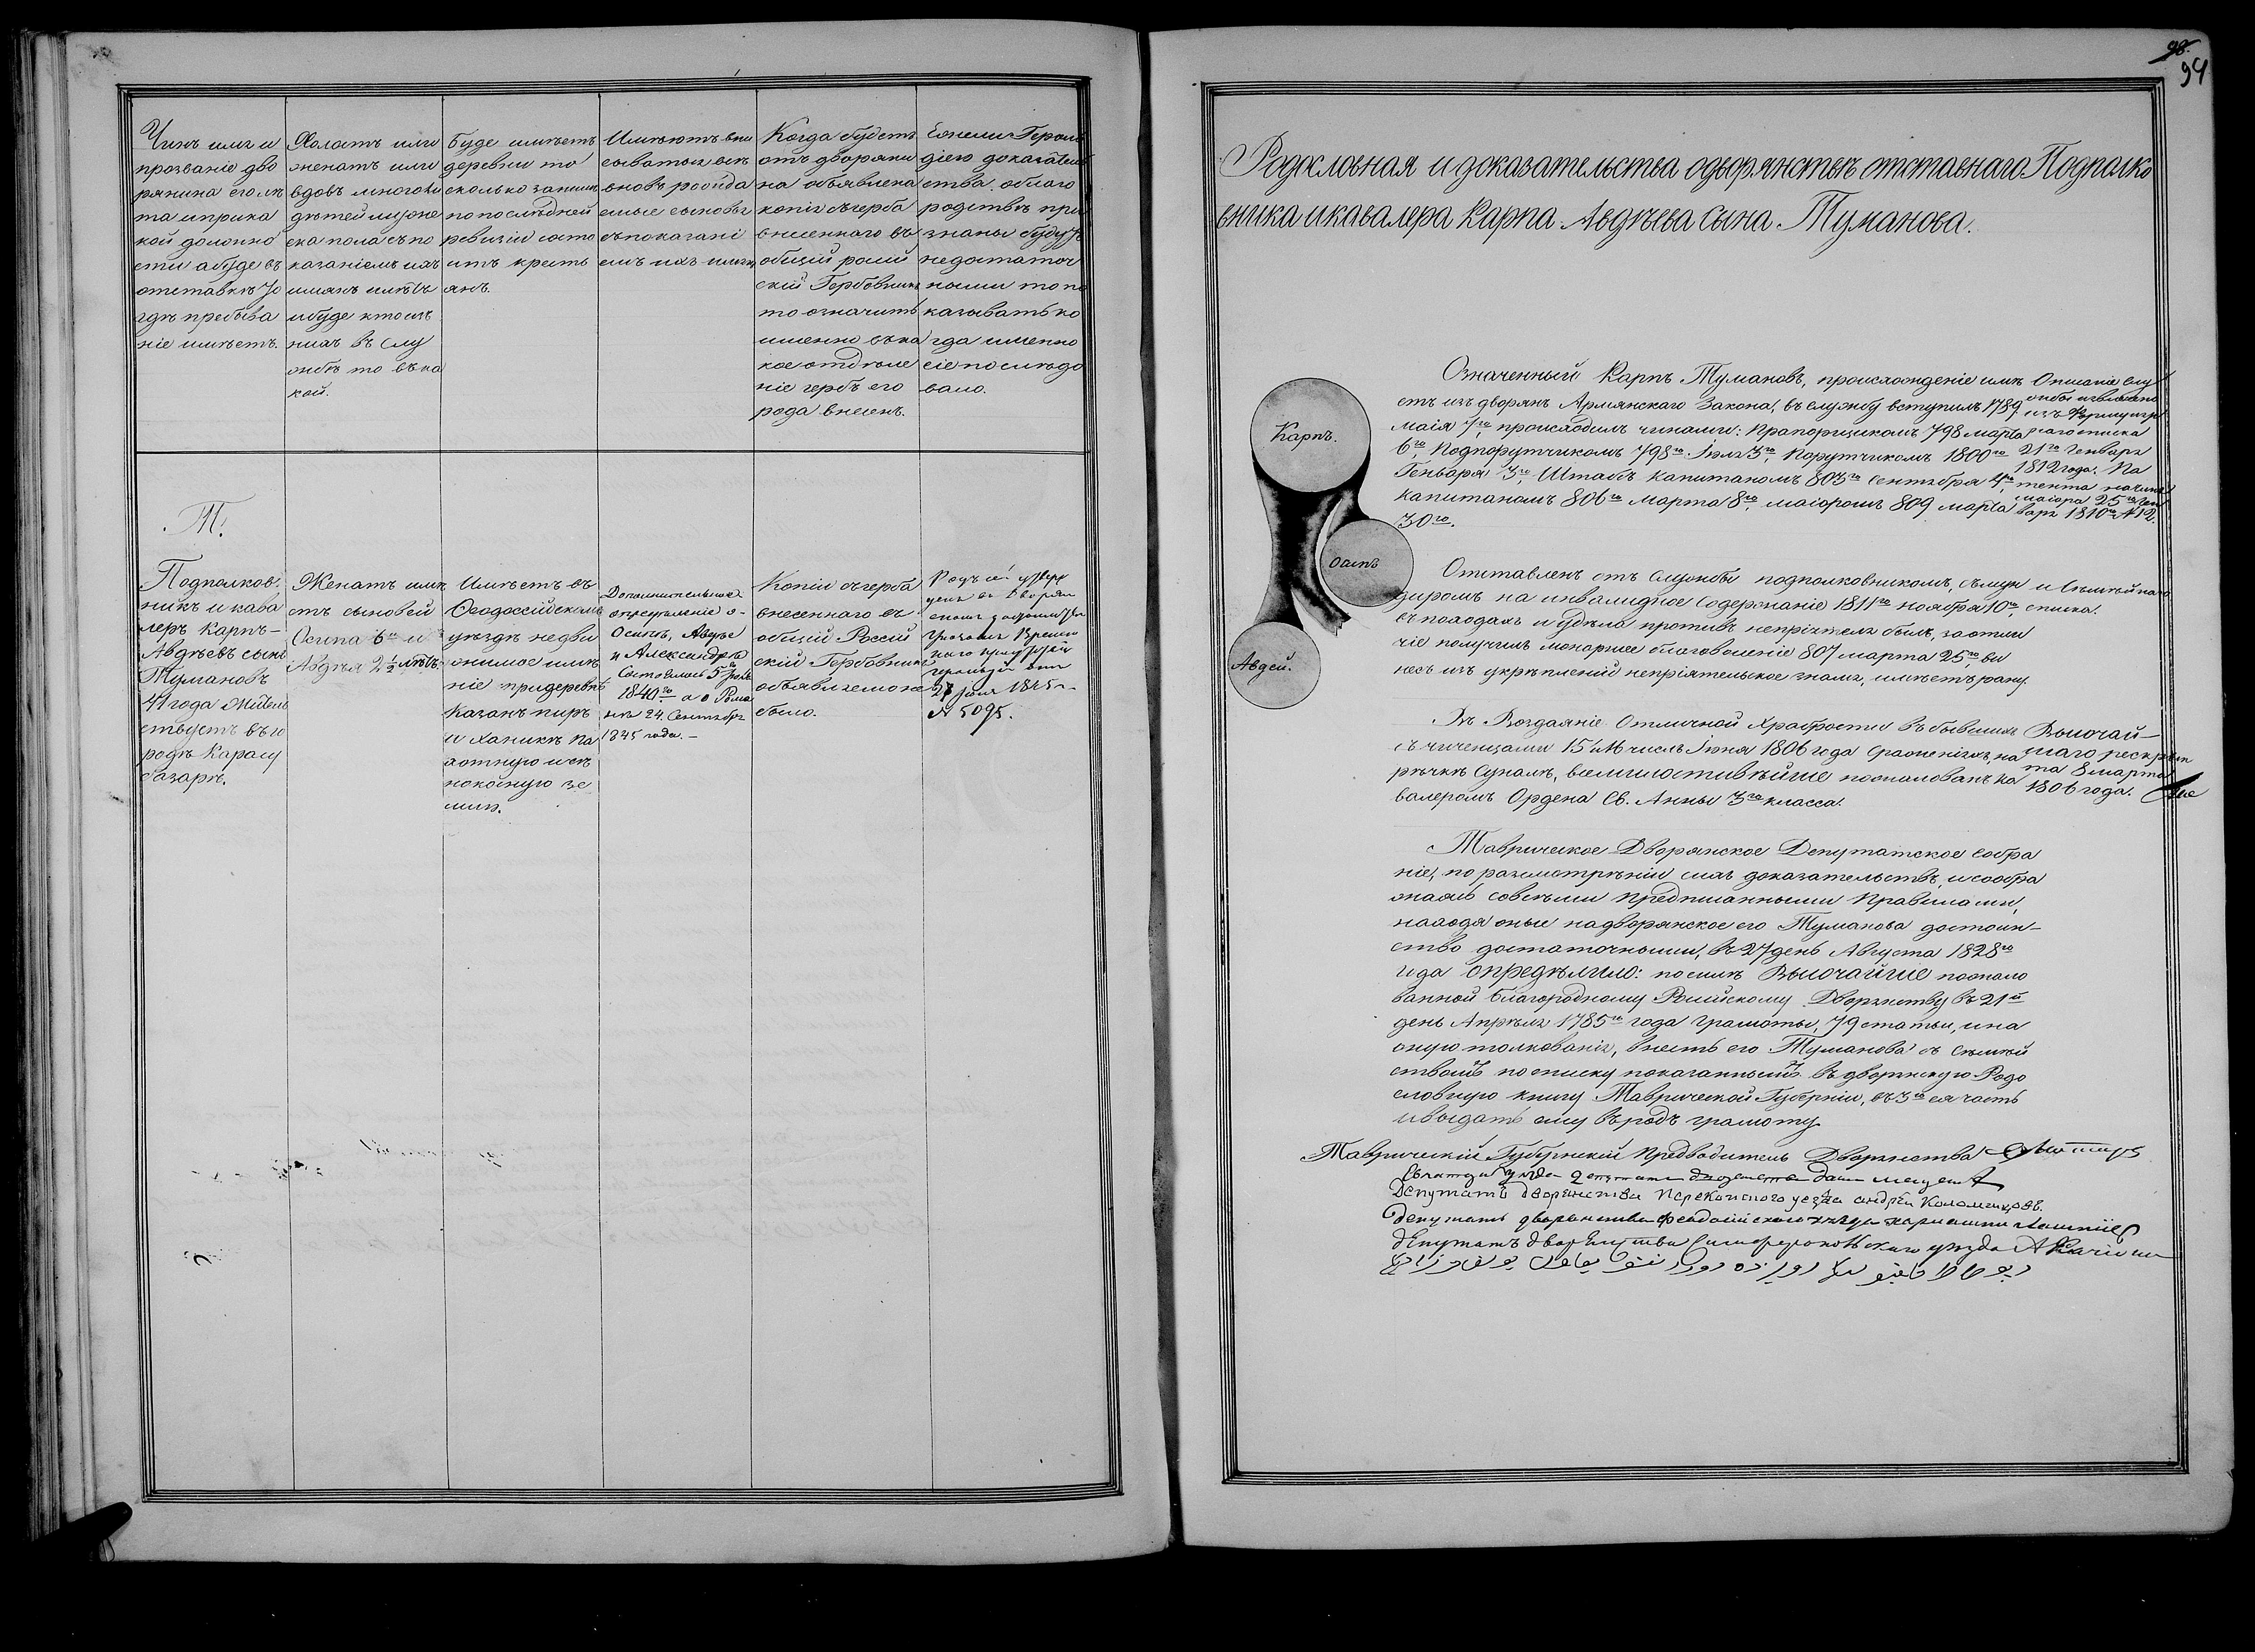 Чинъ имя и
прозваніе дво
рянина его лѣ
та и при ка
кой должно
сти а буде въ
отставкѣ то
гдѣ пребыва
ніе имѣетъ.
Холостъ или
женатъ или
вдовъ много ли
дѣтей мужс
ка пола съ по
казаніемъ ихъ
имянъ и лѣтъ
и буде кто изъ
нихъ въ слу
жбѣ то въ ка
кой.
Буде имѣетъ
деревни то
сколько за нимъ
по послѣдней
ревизіи состо
итъ кресть
янъ.
Имѣютъ впи
сываться всѣ
вновь рожда
емые сыновья
съ показані
емъ ихъ имянъ
Когда будетъ
отъ дворяни
на объявлена
копія съ герба
внесеннаго въ
общій россій
скій Гербовникъ
то означить
именно въ ка
кое отдѣле
ніе гербъ его
рода внесенъ.
Ежели Героль
діею доказатель
ства о благо
родствѣ при
знаны будутъ
недостаточ
ными то по
казывать ко
гда именно
сіе послѣдо
вало.
Т.
Подполков
никъ и кава
леръ Карпъ
Авдѣевъ сынъ
Тумановъ
41 года жител
ствуетъ въ го
родѣ Карасу
базарѣ.
Женатъ имѣ
етъ сыновей
Осипа 6ти и
Авдѣя 2½ лѣтъ
Имѣетъ въ
Ѳеодосійскомъ
уѣздѣ недви
жимое имѣ
ніе при деревнѣ
Казанъ пиръ
и Ханикѣ па
хотную и сѣ
нокосную зе
млю.
Дополнительное
опредѣленіе о
Осипѣ, Авдѣе
и Александрѣ
Состоялось 5
1840го а о Рома
нѣ 24. Сентября
1845 года. —
Копіи съ герба
внесеннаго въ
общій Россій
скій Гербовникъ
объявляемо не
было.
1845
№ 5095.
98.
94
Родословная и доказательства о дворянствѣ отставнаго Подполко
вника и кавалера Карпа Авдѣева Сына Туманова.
Карпъ.
Осипъ
Авдей.
Означенный Карпъ Тумановъ, происхожденіе имѣ
етъ изъ дворянъ Армянскаго Закона, въ службу вступилъ 1789
маія 7го, происходилъ чинами: Прапорщикомъ 798 марта
6го, Подпорутчикомъ 798го Іюля 3го, Порутчикомъ 1800го
Генваря 3го, Штабъ капитаномъ 803го Сентября 4го
капитаномъ 806го марта 8го, маіоромъ 809 марта
30го.
Описаніе слу
жбы извлечено
изъ Формуляр
наго списка
21го Генваря
1812 года. Па
тента на чинъ
маіора 25го Ген
варя 1810го № 12.
Отставленъ отъ Службы подполковникомъ, съ мун
диромъ на инвалидное Содержаніе 1811го ноября 10го,
въ походахъ и дѣлѣ противъ непріятеля былъ, за отли
чіе получилъ монаршее благоволеніе 807 марта 25го, вы
несъ изъ укрѣпленій непріятельское знамя, имѣетъ рану.
списка.
Въ Воздаяніе Отличной Храбрости въ бывшихъ
съ чиченцами 15 и 16 числъ Іюня 1806 года сраженіяхъ, на
рѣчкѣ Сунжѣ, всемилостивѣйше пожалованъ ка
валеромъ Ордена Св. Анны 3го класса.
Высочай—
шаго рескрип
та 8 марта
1806 года.
Таврическое Дворянское Депутатское Собра
ніе, по разсмотрѣніи сихъ доказательствъ, и сообра
жаясь со всѣми предписанными Правилами,
находя оныя на дворянское его Туманова достоин—
ство достаточными, въ 27 день Августа 1828го
года опредѣлило: по силѣ Высочайше пожало
ванной Благородному Россійскому Дворянству въ 21й
день Апрѣля 1785го года Грамоты, 79 статьи, и на
оную толкованія, внесть его Туманова съ Семей
ствомъ по списку показаннымъ въ дворянскую Родо
словную книгу Таврической Губерніи, въ 3ю ея часть
и выдать ему въ родъ грамоту.
Таврическій Губернскій Предводитель Дворянства
Депутатъ дворянства Перекопского уезда андрей Коломийцовъ.
депутатъ дворянства феодосійскаго уезда
депутатъ дворянства Симферопольскаго уезда